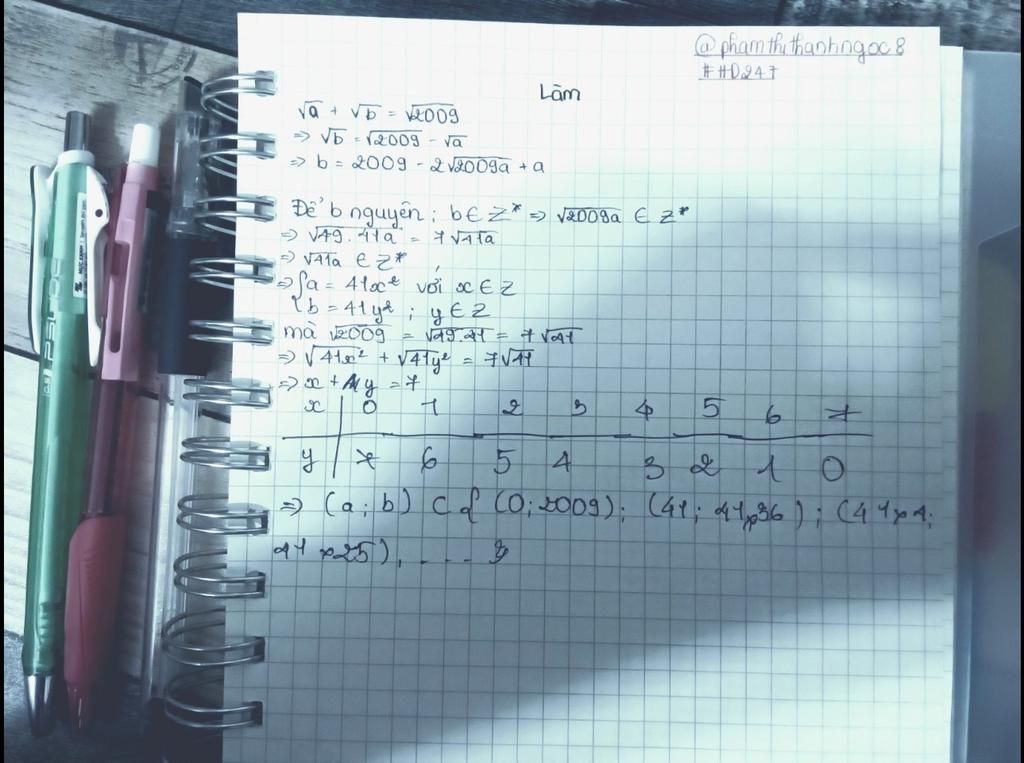 @phamthithanhngoc8
#HD247
Làm
√a + √b = √2009
⇒ √b = √2009 - √a
⇒ b = 2009 - 2√2009a + a
Để b nguyên; b ∈ Z* ⇒ √2009a ∈ Z*
⇒ √49.41a = 7√41a
⇒ √41a ∈ Z*
⇒ { a = 41x² với x ∈ Z
{ b = 41y² ; y ∈ Z
mà √2009 = √49.41 = 7√41
⇒ √41x² + √41y² = 7√41
⇒ x + y = 7
x | 0 1 2 3 4 5 6 7
y | 7 6 5 4 3 2 1 0
⇒ (a; b) ⊂ { (0; 2009); (41; 41×36); (41×4;
41×25), .... }